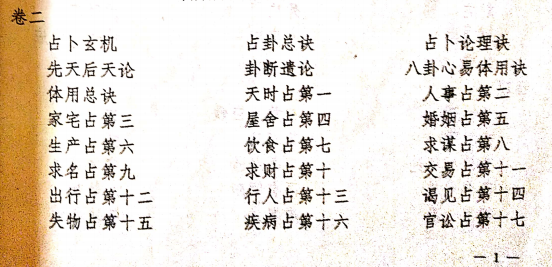 卷二
占卜玄机 占卦总诀 占卜论理诀
先天后天论 卦断遣论 八卦心易体用诀
体用总诀 天时占第一 人事占第二
家宅占第三 屋舍占第四 婚姻占第五
生产占第六 饮食占第七 求谋占第八
求名占第九 求财占第十 交易占第十一
出行占第十二 行人占第十三 谒见占第十四
失物占第十五 疾病占第十六 官讼占第十七
— 1 —